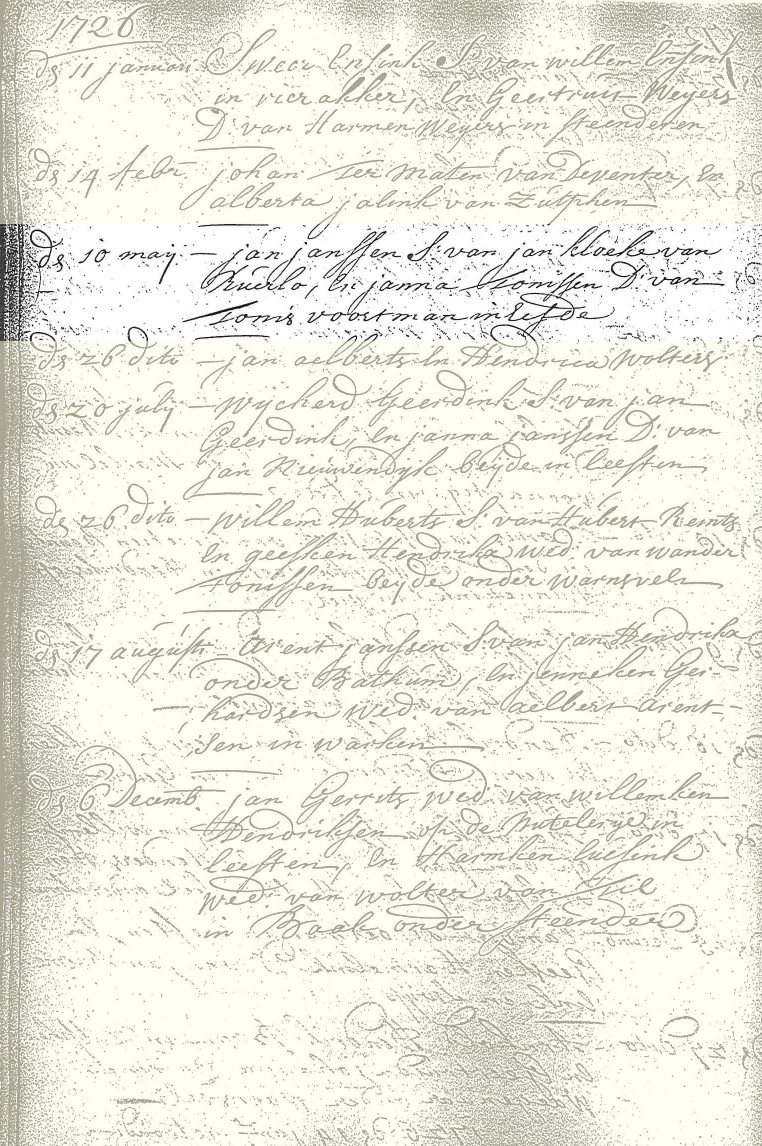 1726
ds 11 januari Sweer Ensink S. van willem Ensink
in vierakker, En Geertruit Weyers
D. van Harmen Weyers in steenderen
ds 14 febr. johan ter maten van Deventer, En
alberta jalink van Zutphen
ds 10 maij — jan janssen S. van jan kloeke van
Ruerlo, En janna Tonissen D. van
Tonis voortman in Eefde
ds 26 dito — jan aelberts En Hendrica Wolters
ds 20 julij — Wijcherd Geerdink S. van jan
Geerdink, En janna janssen D. van
jan Nieuwendyk beyde in leesten
ds 26 dito — willem Huberts S. van Hubert
En geesken Hendriks wed. van wander
Tonissen beyde onder warnsvelt
ds 17 augusti — Arent janssen S. van jan Hendriks
onder Bathum, En jenneken Ger-
hardsen wed. van aelbert arent-
sen in warken
ds 6 Decemb. jan Gerrits wed. van willemken
Hendriksen op de in
leesten, En Harmken
wed. van wolter van Til
in Baak onder steender